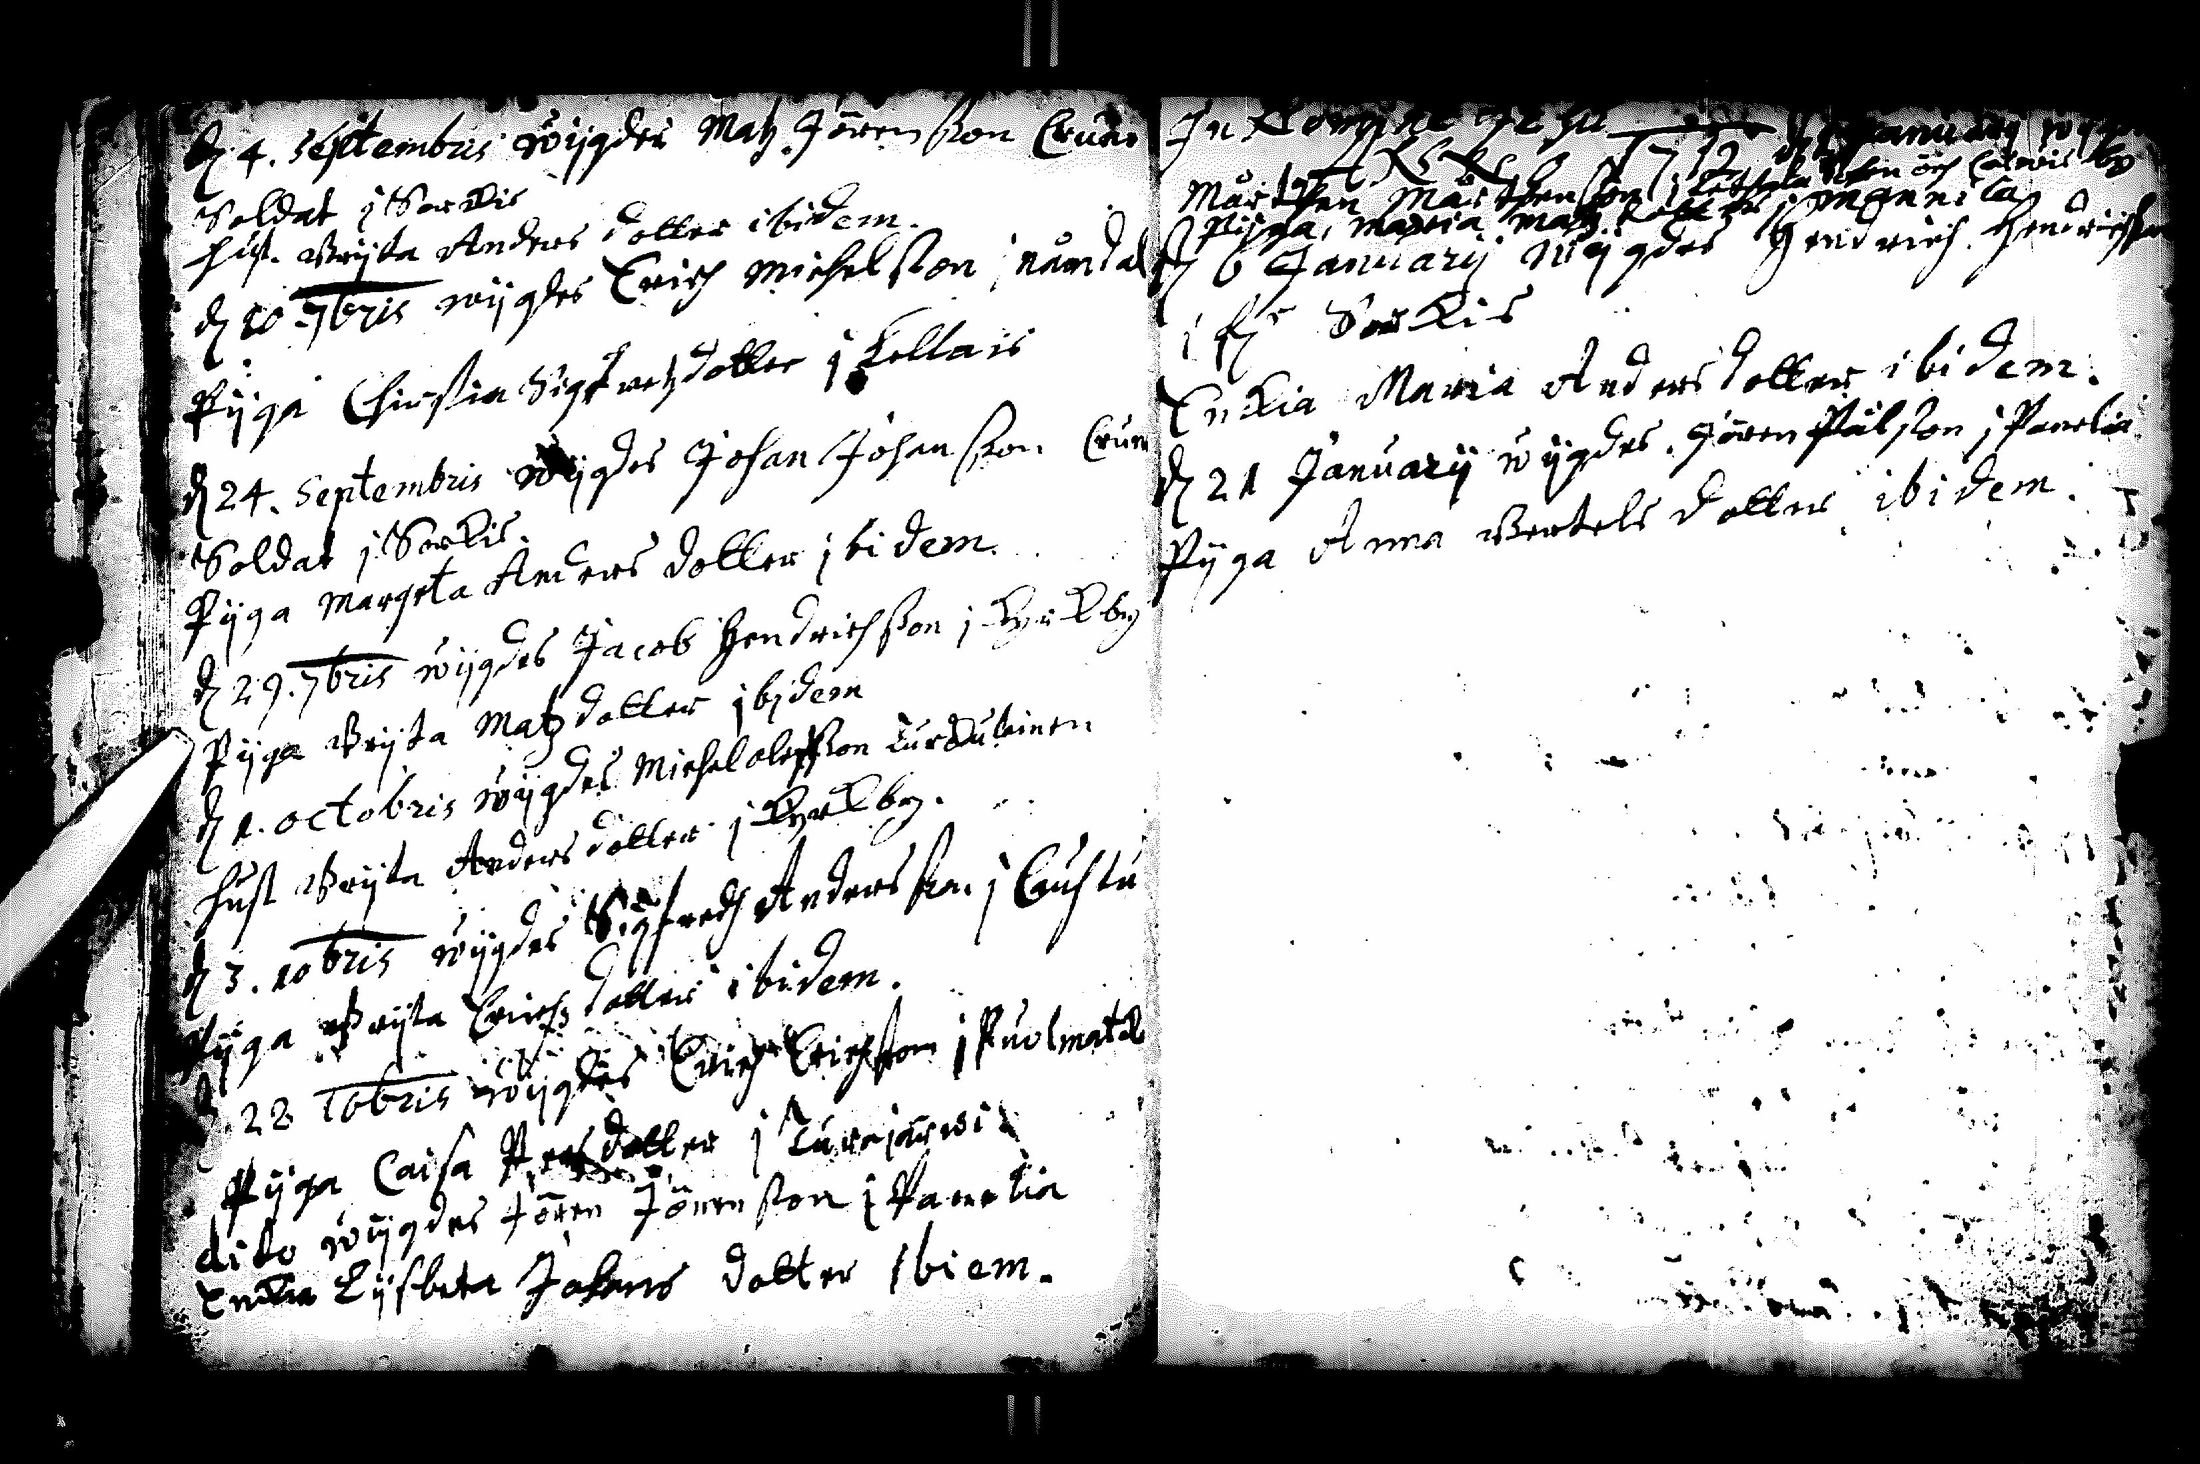 d 4. Septembris wijgdes Matz Jörensson
Soldat j Sorkis
Hust. Brijta Anders dotter ibidem.
d 10 7bris wijgdes Erich Michelsson j
Pijga Chirstin Sigfretz dotter j Kellais
d 24. Septembris wijgdes Johan Johansson
Soldat j Sorkis.
Pijga Margeta Anders dotter jbidem.
d 29. 7bris wijgdes Jacob Hendrichsson j Kyrkby
Pijga Brijta Matz dotter jbidem
d 1. octobris wijgdes Michel olefsson
Hust Brijta Anders dotter j Kyrkby.
d 3. 10bris wijgdes Sigfredh Andersson j
Pijga Brijta Erichz dotter ibidem.
d 28 10bris wijgdes Erich Erichsson j
Pijga Caisa dotter j Turajärwi
dito wijgdes Jören Jörensson j Panelia
Enkia Lijsbeta Johans dotter Ibiem.
In Nomine Jesu
1712 Januarij
Mårthen Mårthensson j
Pijga, Maria Matz dotter j Mannila
d 6 Januarij wijgdes Hendrich Hendrichsson
i Sorkis
Enkia Maria Anders dotter ibidem.
d 21 Januarij wijgdes Jören Pålsson j Panelia
Pijga Anna Bertels dotter ibidem.